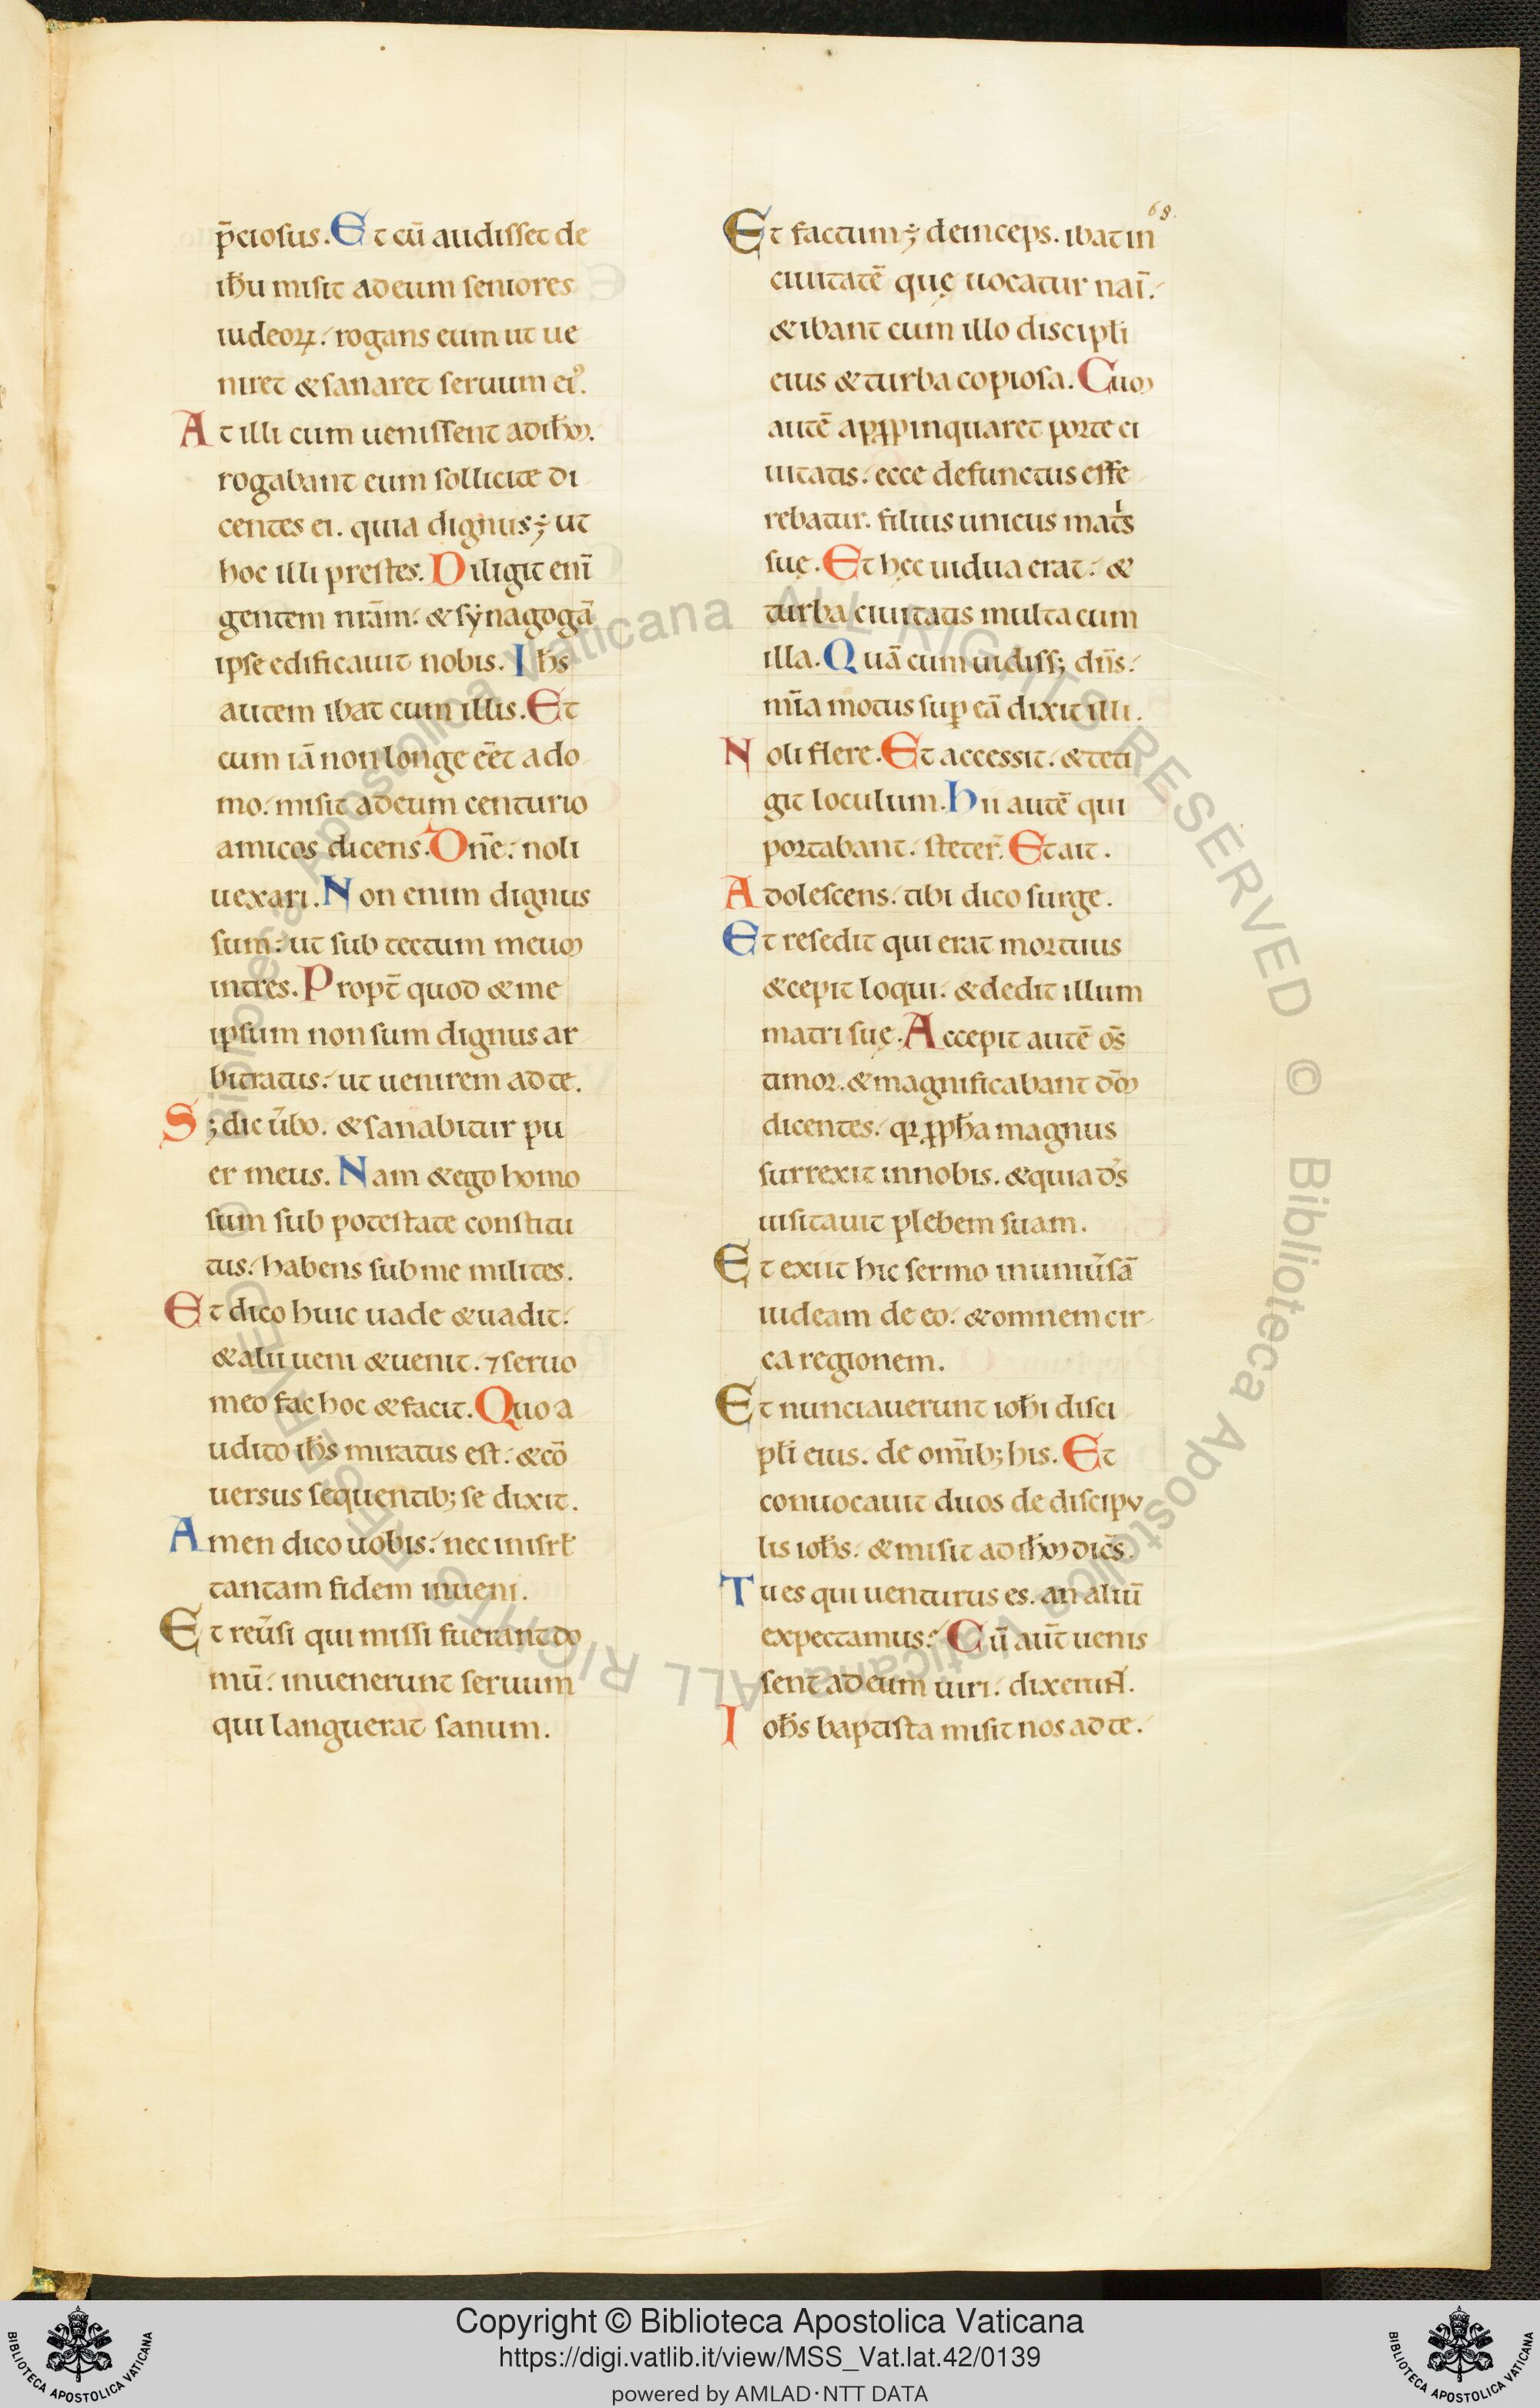 p̄ciosus. Et cū audisset de
ihū misit ad eum seniores
iudeoꝝ. rogans eum ut ue
niret & sanaret seruum eiꝰ.
At illi cum uenissent ad ihm̄.
rogabant eum sollicite di
centes ei. quia dignus ÷ ut
hoc illi prestes. Diligit enī
gentem nrām. & synagogā
ipse edificauit nobis. Ihs̄
autem ibat cum illis. Et
cum iā non longe eēt a do
mo. misit ad eum centurio
amicos dicens. Dn̄e. noli
uexari. Non enim dignus
sum. ut sub tectum meum
intres. Propt̄ quod & me
ipsum non sum dignus ar
bitratus. ut uenirem ad te.
Sꝫ dic ūbo. & sanabitur pu
er meus. Nam & ego homo
sum sub potestate constitu
tus. habens sub me milites.
Et dico huic uade & uadit.
& alii ueni & uenit. ⁊ seruo
meo fac hoc & facit. Quo a
udito ihs̄ miratus est. & cō
uersus sequentibꝫ se dixit.
Amen dico uobis. nec in isrł
tantam fidem inueni.
Et reūsi qui missi fuerant do
mū. inuenerunt seruum
qui languerat sanum.
68.
Et factum ÷ deinceps. ibat in
ciuitatē quę uocatur naī.
& ibant cum illo discipłi
eius & turba copiosa. Cum
autē apꝓpinquaret porte ci
uitatis. ecce defunctus effe
rebatur. filius unicus mat̄s
suę. Et hęc uidua erat. &
turba ciuitatis multa cum
illa. Quā cum uidissꝫ dn̄s.
mīa motus suꝑ eā dixit illi.
Noli flere. Et accessit. & teti
git loculum. Hii autē qui
portabant. steter̄. Et ait.
Adolescens. tibi dico surge.
Et resedit qui erat mortuus
& cepit loqui. & dedit illum
matri suę. Accepit autē om̄s
timor. & magnificabant dm̄
dicentes. qꝛ ꝓpħa magnus
surrexit in nobis. & quia ds̄
uisitauit plebem suam.
Et exiit hic sermo in uniūsā
iudeam de eo. & omnem cir-
ca regionem.
Et nunciauerunt ioħi disci
płi eius. de om̄ibꝫ his. Et
conuocauit duos de discipu
lis ioħs. & misit ad ihm̄ dicēs.
Tu es qui uenturus es. an aliū
expectamus? Cū aūt uenis
sent ad eum uiri. dixerunt.
Ioħs baptista misit nos ad te.
Copyright © Biblioteca Apostolica Vaticana
https://digi.vatlib.it/view/MSS_Vat.lat.42/0139
powered by AMLAD·NTT DATA
BIBLIOTECA APOSTOLICA VATICANA
BIBLIOTECA APOSTOLICA VATICANA
© Biblioteca Apostolica Vaticana ALL RIGHTS RESERVED © Biblioteca Apostolica Vaticana ALL RIGHTS RESERVED